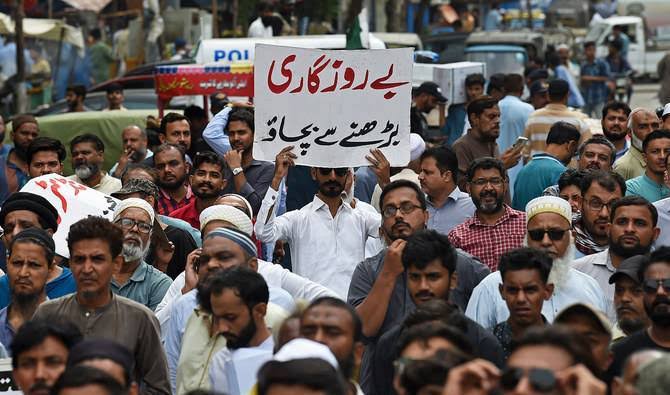 POL
بے روزگاری
بڑھنے سے بچاؤ